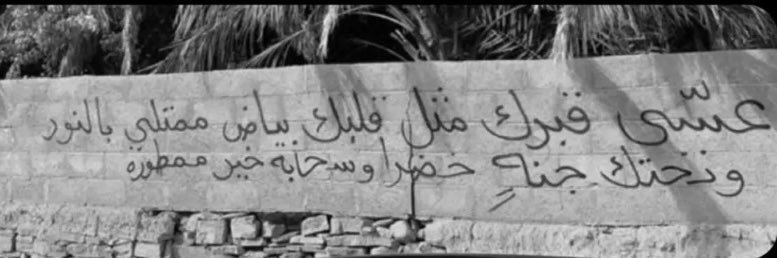 عسّى قبرك مثل قلبك بياض ممتلي بالنور
وذختك جنهٍ خضرا وسحابة خير ممطوره